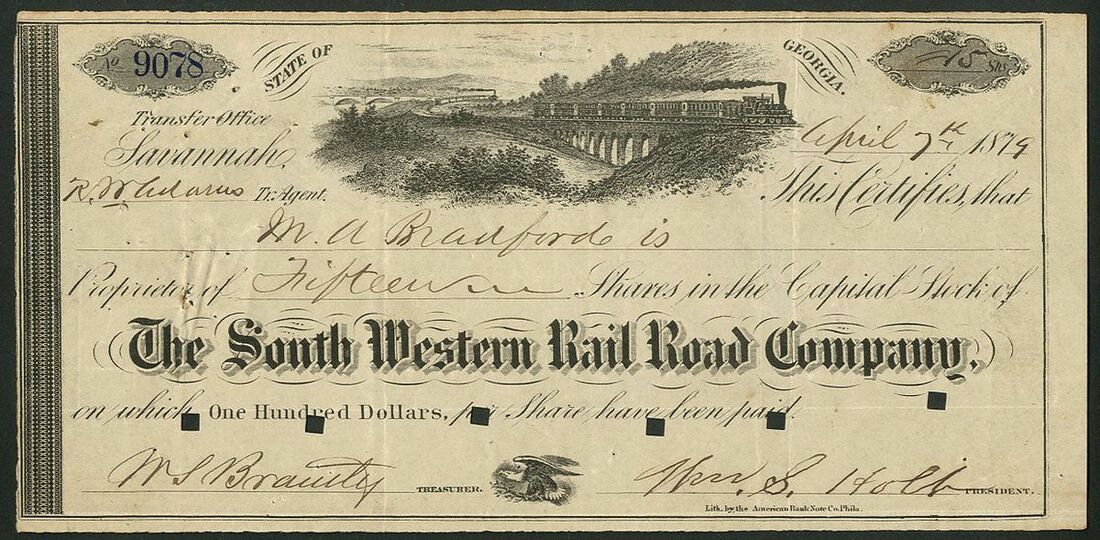 No 9078
STATE OF GEORGIA.
15 Shs
Transfer Office
Savannah,
April 7th 1879
R. W. Adams Tr. Agent.
This Certifies, that
M. A Bradford is
Proprietor of Fifteen Shares in the Capital Stock of
The South Western Rail Road Company,
on which One Hundred Dollars, per Share have been paid.
W S Brantly TREASURER.
Wm. S. Holt PRESIDENT.
Lith. by the American Bank Note Co. Phila.